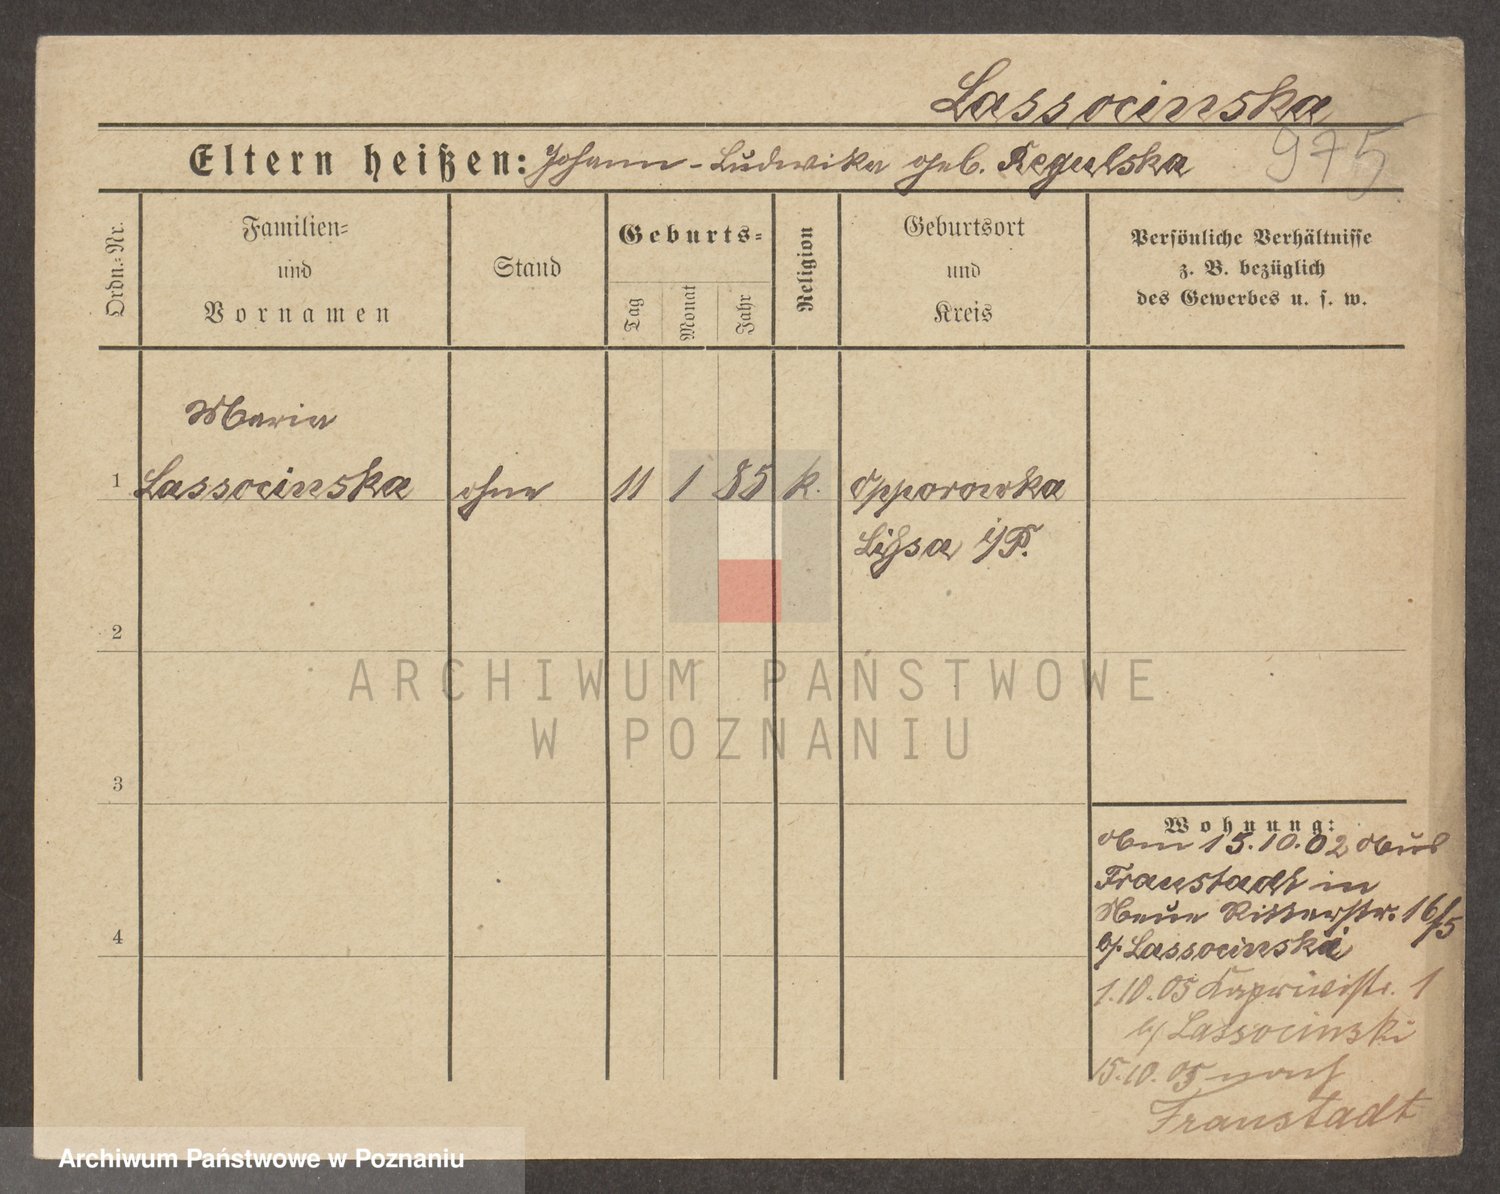 Lassocinska
975
Eltern heißen: Johann - Ludwika geb. Regulska
Ordn.-Nr.
Familien-
und
Vornamen
Stand
Geburts-
Tag
Monat
Jahr
Religion
Geburtsort
und
Kreis
Persönliche Verhältnisse
z. B. bezüglich
des Gewerbes u. s. w.
Maria
1 Lassocinska ohne 11 1 85 k. Opporowka
Lißsa i/P.
2
3
4
Wohnung:
Am 15.10.02 Aus
Fraustadt in
Neue Ritterstr. 16/5
b/. Lassocinski
1.10.05 Kaprivistr. 1
b/ Lassocinski
15.10.05 nach
Fraustadt
ARCHIWUM PAŃSTWOWE
W POZNANIU
Archiwum Państwowe w Poznaniu